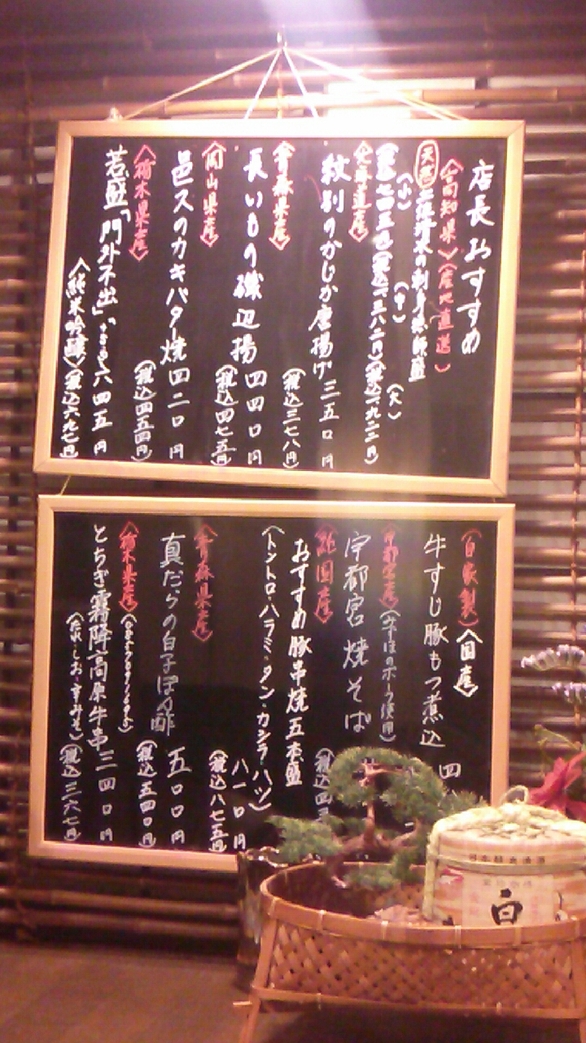 店長おすすめ
〈高知県〉〈産地直送〉
天然
刺身
(小)
(中)
(大)
(税込一九二二円)
〈北海道産〉
紋別のかじか唐揚げ三五〇円
(税込三七八円)
〈青森県産〉
長いもの磯辺揚四四〇円
(税込四七五円)
〈岡山県産〉
邑久のカキバター焼四二〇円
(税込四五四円)
〈栃木県産〉
若盛「門外不出」六四五円
〈純米吟醸〉(税込六九七円)
〈自家製〉〈国産〉
牛すじ豚もつ煮込 四
〈宇都宮産〉(みずほのポーク使用)
宇都宮焼そば
(税込四
〈国産〉
おすすめ豚串焼五本盛
(トントロ・ハラミ・タン・カシラ・ハツ)
八一〇円
(税込八七五円)
〈青森県産〉
真だらの白子ぽん酢 五〇〇円
(税込五四〇円)
〈栃木県産〉
とちぎ霧降高原牛串三四〇円
(たれ・しお・すみそ)(税込三六七円)
白